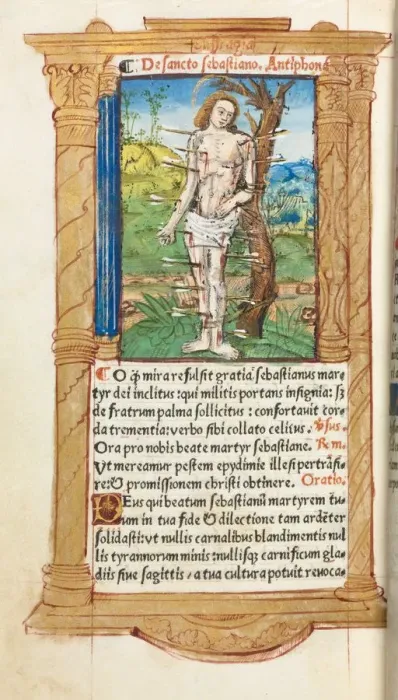 Suffragia
¶ De sancto sebastiano. Antiphona
¶ O q̃ mira refulsit gratia sebastianus mar-
tyr dei inclitus: qui militis portans insignia: sȝ
de fratrum palma sollicitus: confortauit cor-
da trementia: verbo sibi collato celitus. v̄sus.
Ora pro nobis beate martyr sebastiane. R̃m.
Vt mereamur pestem epydimie illesi pertrãsi-
re: & promissionem christi obtinere. Oratio.
Deus qui beatum sebastianũ martyrem tu-
um in tua fide & dilectione tam ardẽter
solidasti: vt nullis carnalibus blandimentis nul
lis tyrannorum minis: nullisqȝ carnificum gla-
diis siue sagittis / a tua cultura potuit reuoca-